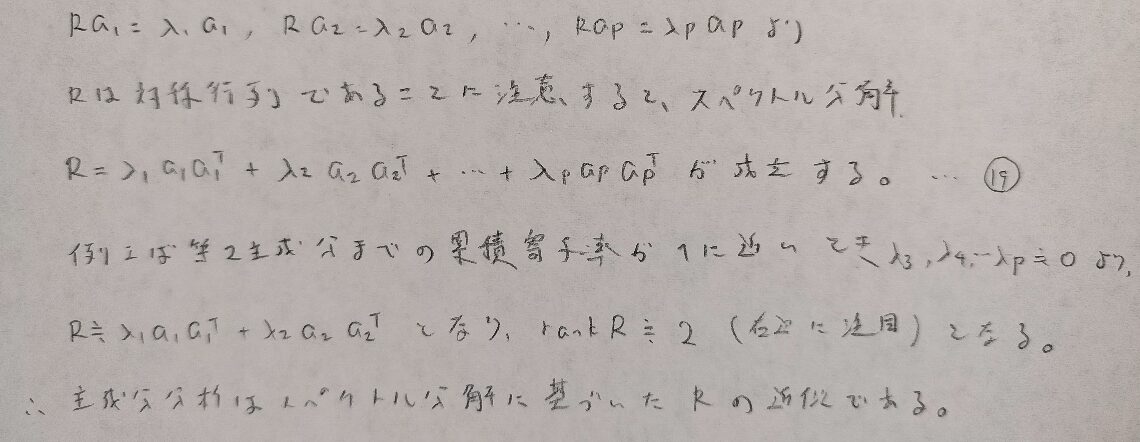 Ra₁ = λ₁a₁, Ra₂ = λ₂a₂, …, Rap = λp ap より
Rは対称行列であることに注意すると、スペクトル分解
R = λ₁a₁a₁ᵀ + λ₂a₂a₂ᵀ + … + λp ap apᵀ が成立する。 … ⑲
例えば第2主成分までの累積寄与率が1に近いとき λ₃, λ₄, … λp ≒ 0 より,
R ≒ λ₁a₁a₁ᵀ + λ₂a₂a₂ᵀ となり、rank R ≒ 2 (右辺に注目) となる。
∴ 主成分分析はスペクトル分解に基づいた Rの近似である。